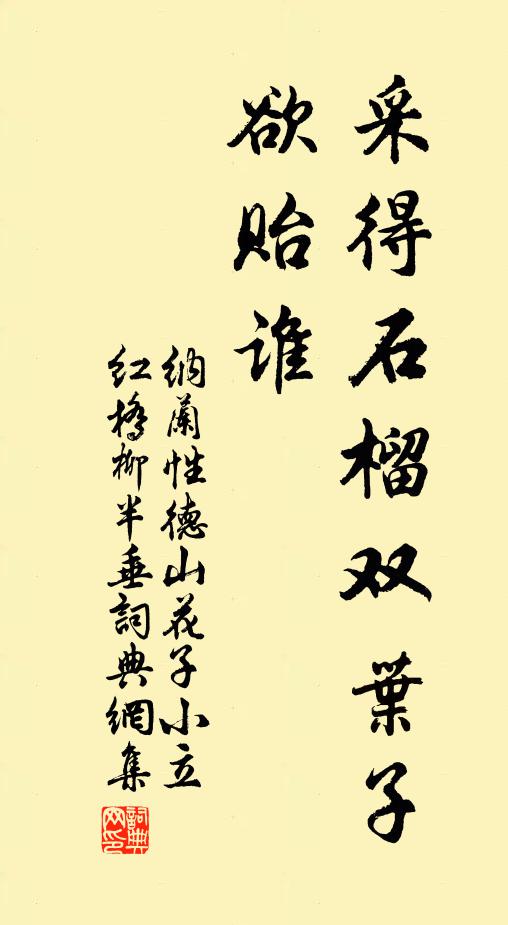 采得石榴双葉子
欲贻谁
纳蘭性德山花子小立
红橋柳半垂詞典網集
詞典
网印